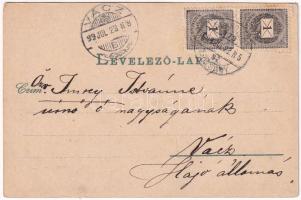 VÁCZ
99 JUL. 23
LEVELEZŐ-LAP
Czím: Özv. Imrey Istvánné,
úrnő ő nagyságának
Vácz
Hajó állomás